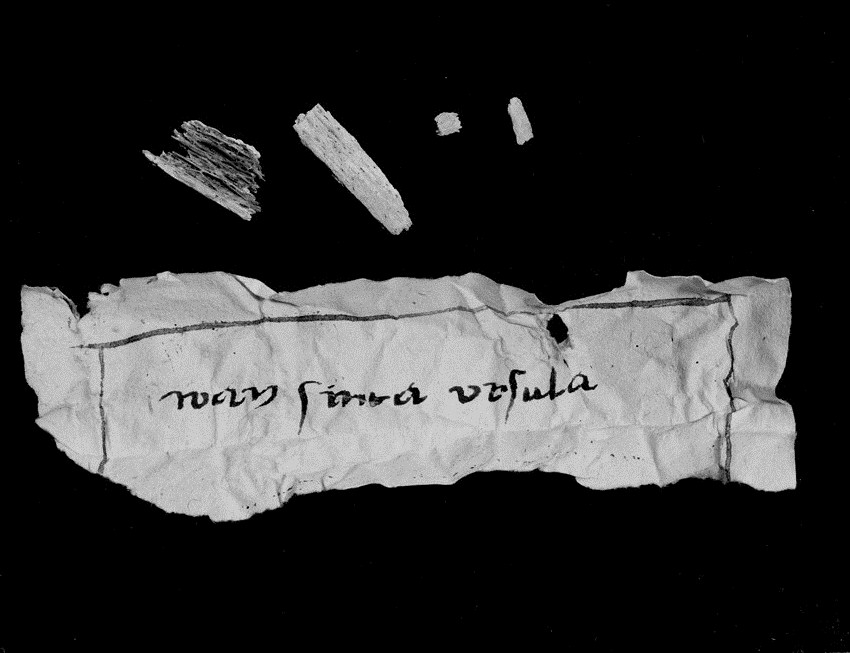 wan ſinta vrſula